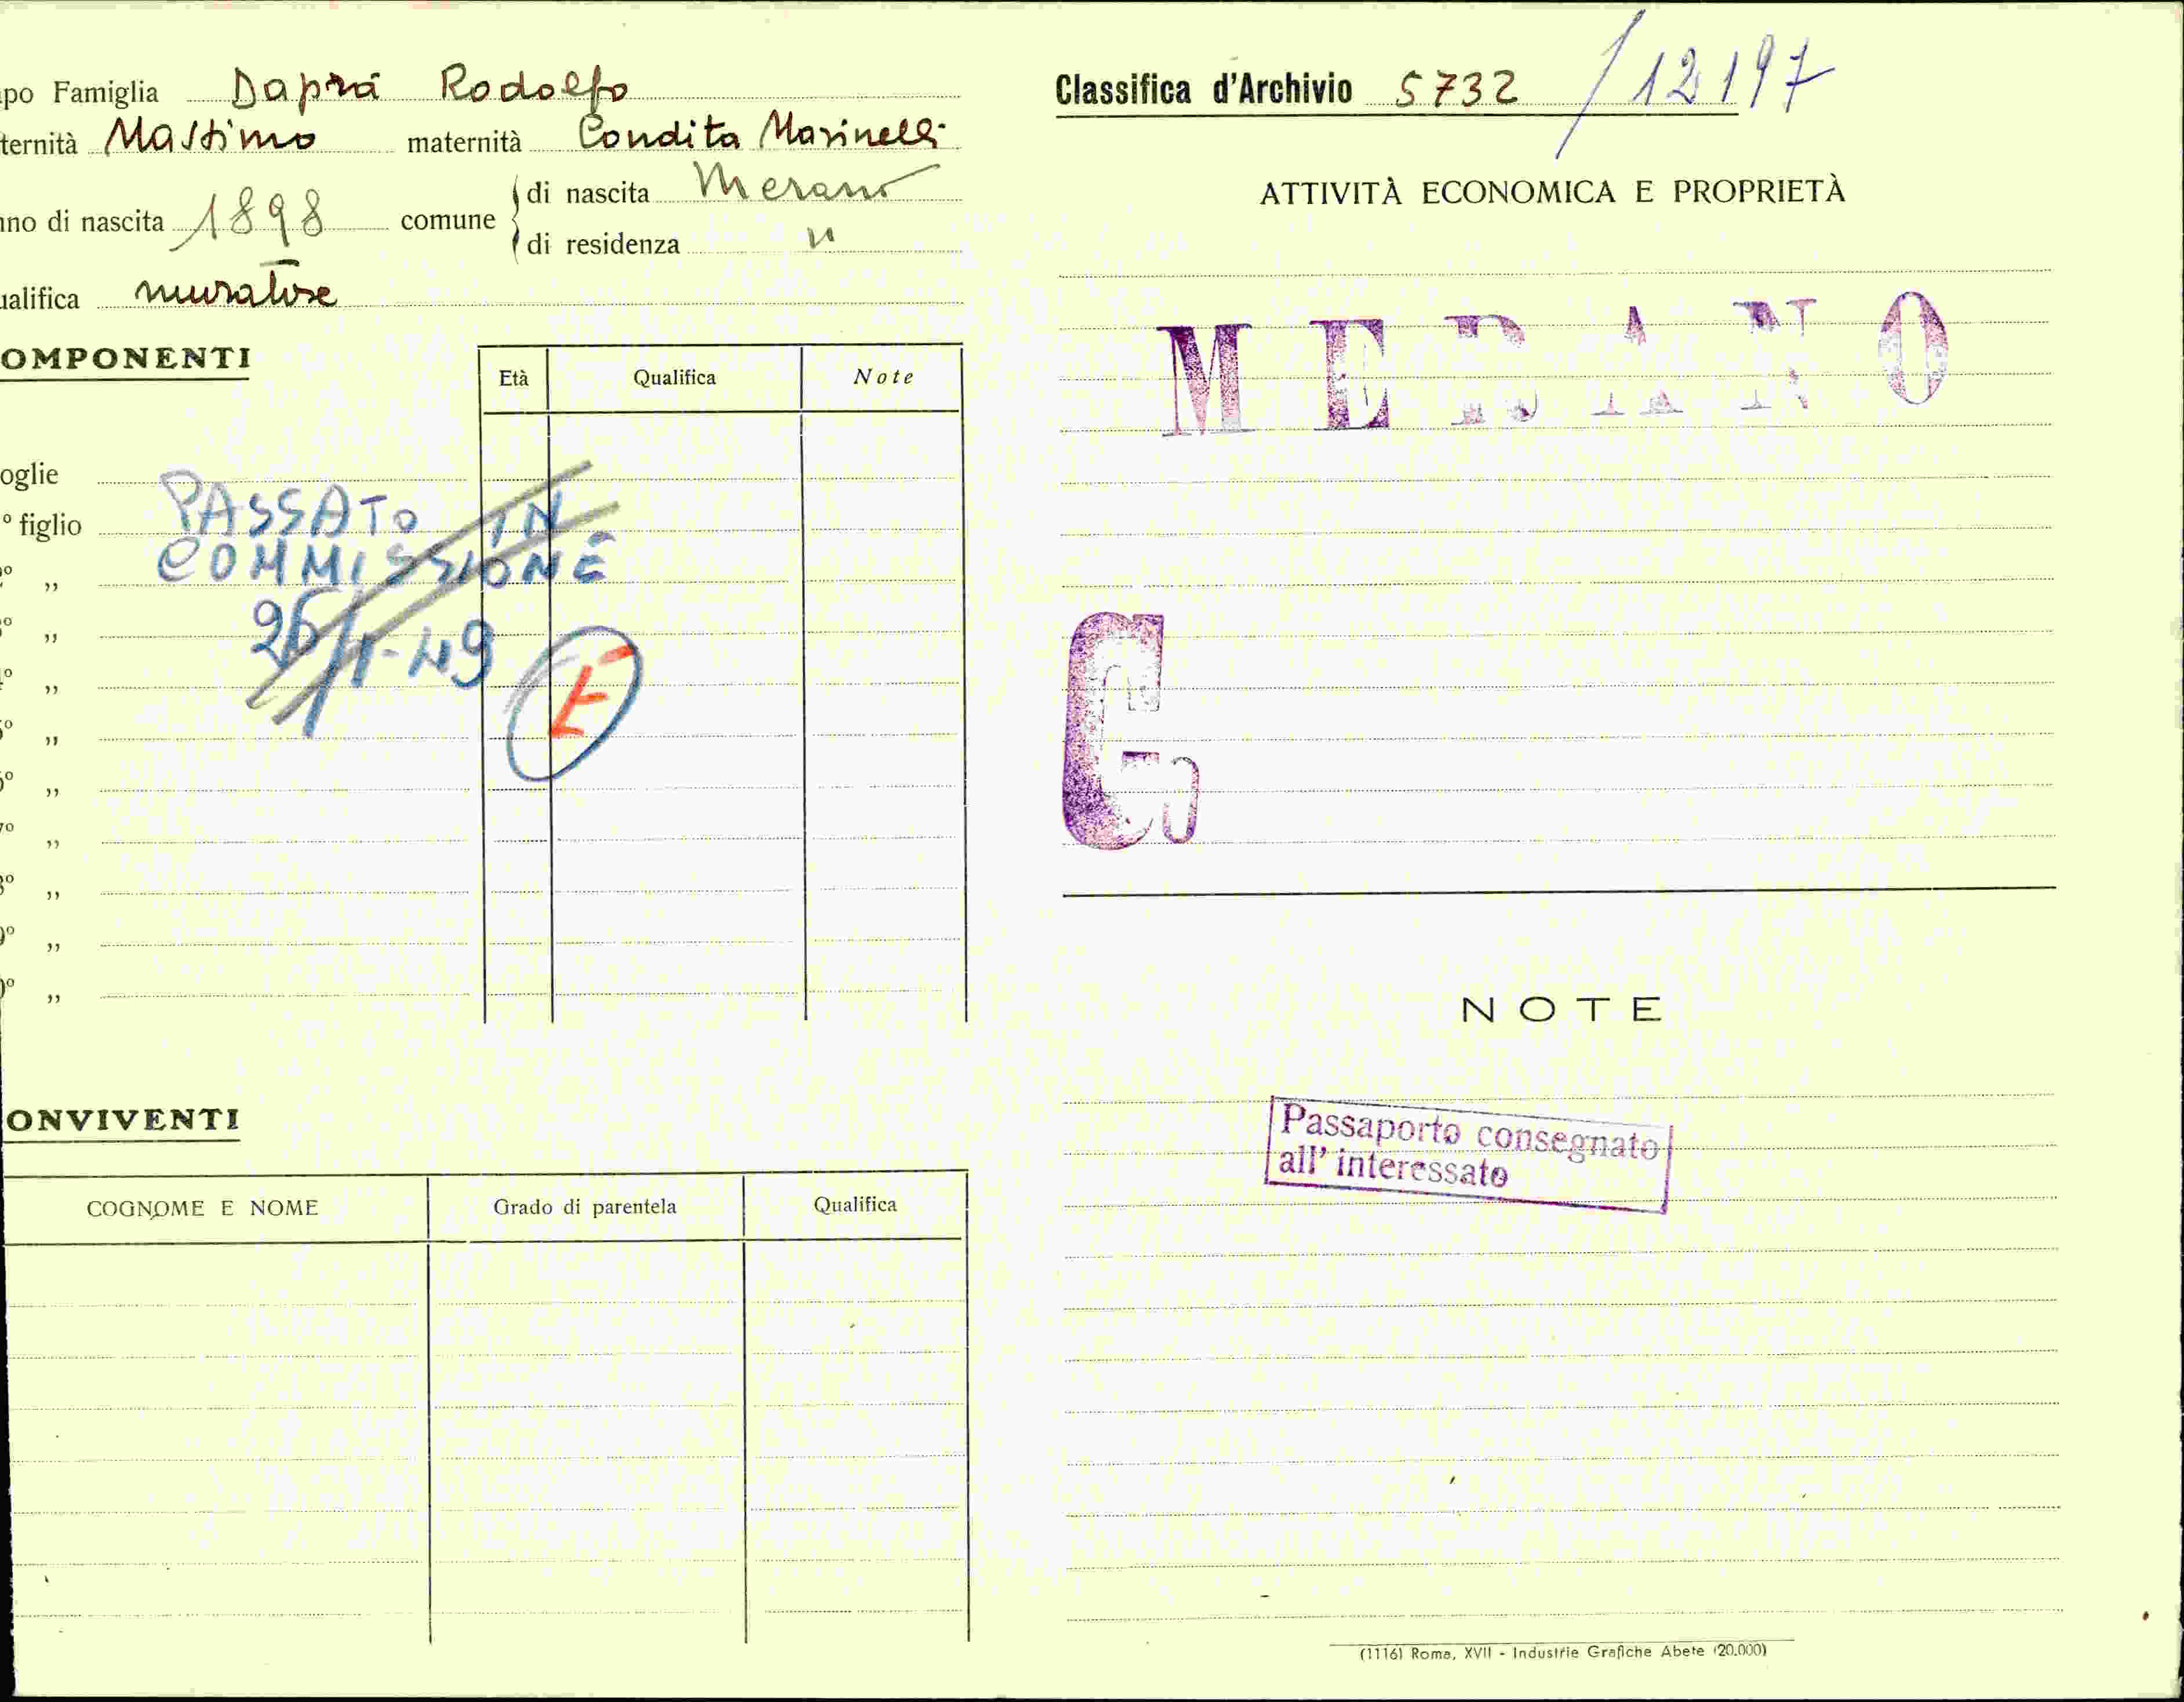 po Famiglia Daprà Rodolfo
ternità Massimo maternità Condita Marinelli
nno di nascita 1898 comune di nascita Merano
di residenza "
ualifica muratore
OMPONENTI
Età Qualifica Note
oglie
° figlio
PASSATO IN
COMMISSIONE
° „
26/1-49
° „
° „
E
° „
° „
7° „
° „
° „
0° „
ONVIVENTI
COGNOME E NOME Grado di parentela Qualifica
Classifica d'Archivio 5732 / 12197
ATTIVITÀ ECONOMICA E PROPRIETÀ
MERANO
G
NOTE
Passaporto consegnato
all' interessato
(11161 Roma, XVII - Industrie Grafiche Abete (20.000)